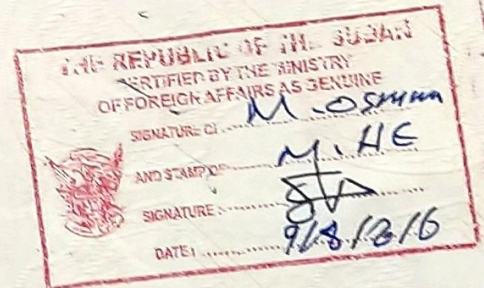 THE REPUBLIC OF THE SUDAN
CERTIFIED BY THE MINISTRY
OF FOREIGN AFFAIRS AS GENUINE
SIGNATURE OF ........ M. Osman
AND STAMP OF ........ M. HE
SIGNATURE :
DATE : ........ 9/8/2016